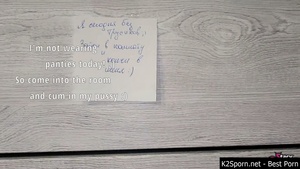 Я сегодня без
трусиков :)
в комнату
и кончи в
меня :)
I'm not wearing
panties today.
So come into the room
and cum in my pussy :)
K2Sporn.net - Best Porn